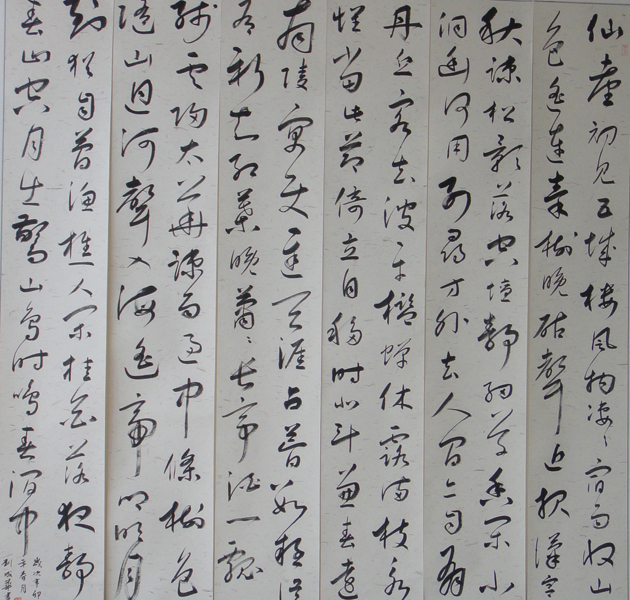 仙臺初見五城樓風物凄凄宿雨收山
色遙連秦樹晚砧聲近報漢宮
秋疎松影落空壇靜細草香閑小
洞幽何用別尋方外去人間亦自有
丹丘客去波平檻蟬休露滿枝永
懷當此節倚立自移時北斗兼春遠
南陵寓使遲天涯占夢數疑誤
有新知紅葉晚蕭蕭長亭酒一瓢
殘雲歸太華疎雨過中條樹色
隨山迥河聲入海遙帝鄉明日
到猶自夢漁樵人閑桂花落夜靜
春山空月出驚山鳥時鳴春澗中
歲次辛卯
年春月